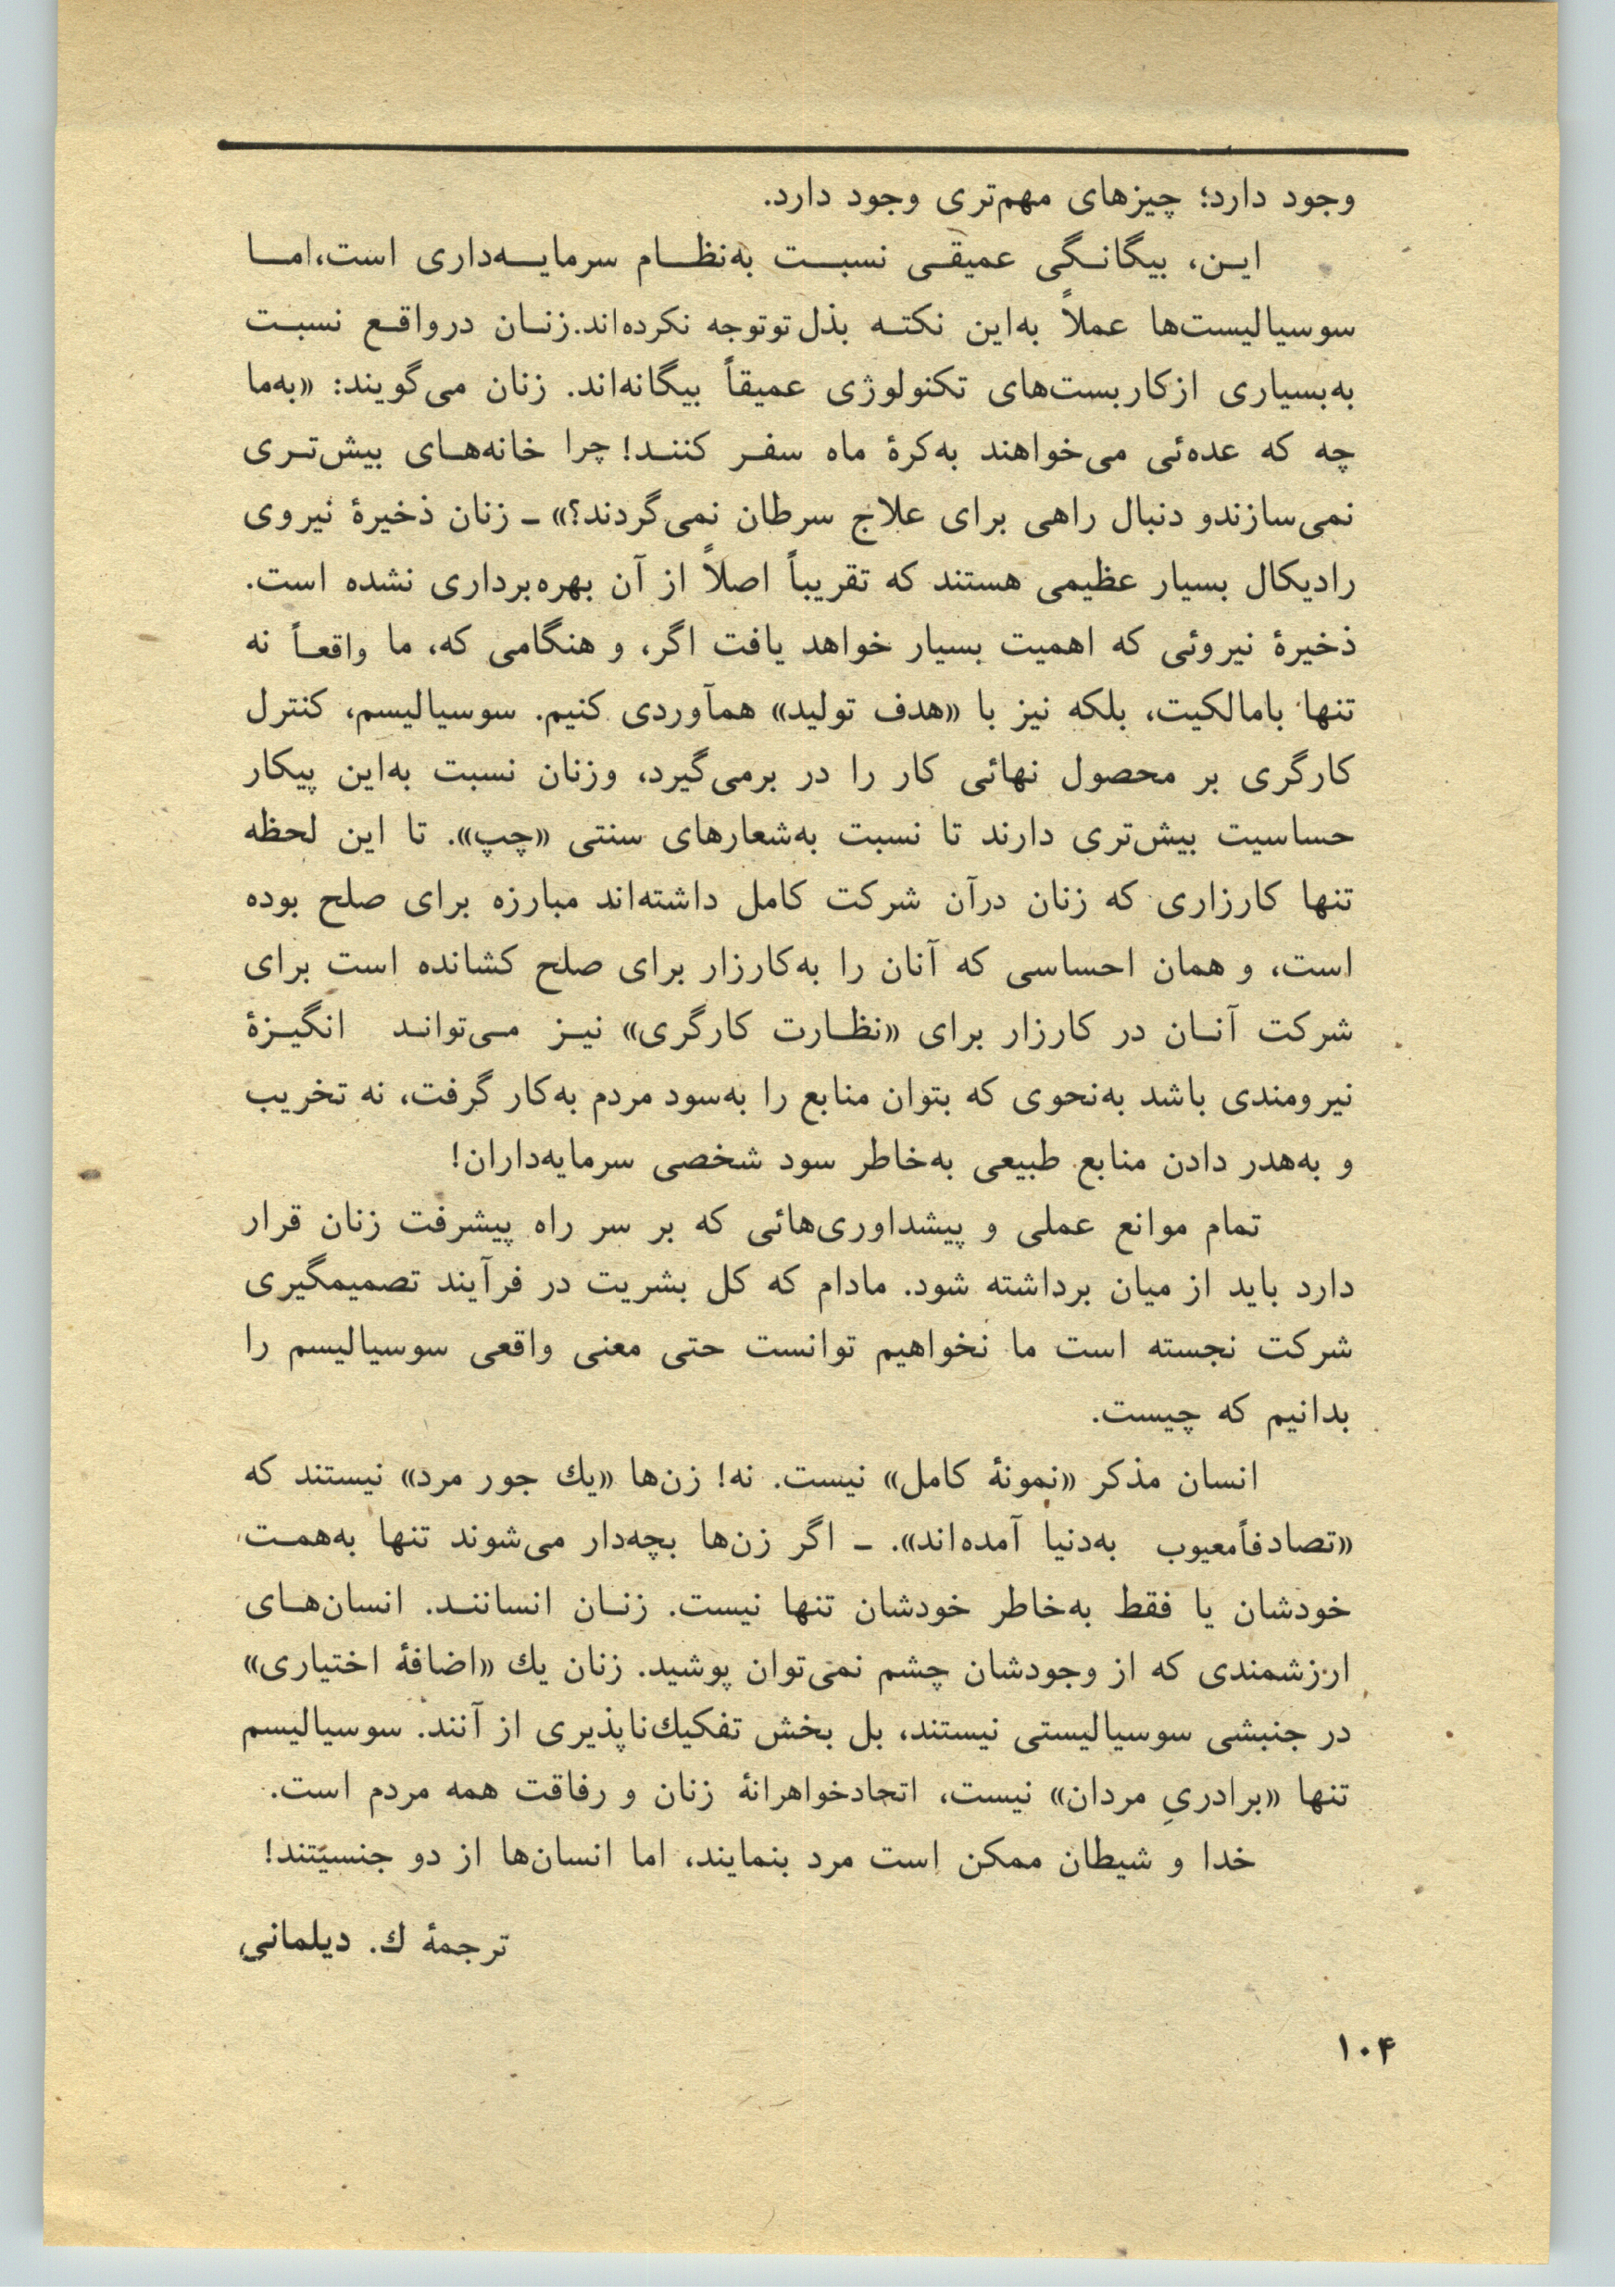 وجود دارد؛ چیزهای مهم‌تری وجود دارد.
ایـن، بیگانـگی عمیقـی نسبـت به‌نظـام سرمایـه‌داری است،امـا
سوسیالیست‌ها عملاً به‌این نکتـه بذل توتوجه نکرده‌اند.زنـان درواقـع نسبـت
به‌بسیاری ازکاربست‌های تکنولوژی عمیقاً بیگانه‌اند. زنان می‌گویند: «به‌ما
چه که عده‌ئی می‌خواهند به‌کرهٔ ماه سفـر کننـد! چرا خانه‌هـای بیش‌تـری
نمی‌سازندو دنبال راهی برای علاج سرطان نمی‌گردند؟» ـ زنان ذخیرهٔ نیروی
رادیکال بسیار عظیمی هستند که تقریباً اصلاً از آن بهره‌برداری نشده است.
ذخیرهٔ نیروئی که اهمیت بسیار خواهد یافت اگر، و هنگامی که، ما واقعـاً نه
تنها بامالکیت، بلکه نیز با «هدف تولید» همآوردی کنیم. سوسیالیسم، کنترل
کارگری بر محصول نهائی کار را در برمی‌گیرد، وزنان نسبت به‌این پیکار
حساسیت بیش‌تری دارند تا نسبت به‌شعارهای سنتی «چپ». تا این لحظه
تنها کارزاری که زنان درآن شرکت کامل داشته‌اند مبارزه برای صلح بوده
است، و همان احساسی که آنان را به‌کارزار برای صلح کشانده است برای
شرکت آنـان در کارزار برای «نظـارت کارگری» نیـز مـی‌توانـد انگیـزهٔ
نیرومندی باشد به‌نحوی که بتوان منابع را به‌سود مردم به‌کار گرفت، نه تخریب
و به‌هدر دادن منابع طبیعی به‌خاطر سود شخصی سرمایه‌داران!
تمام موانع عملی و پیشداوری‌هائی که بر سر راه پیشرفت زنان قرار
دارد باید از میان برداشته شود. مادام که کل بشریت در فرآیند تصمیمگیری
شرکت نجسته است ما نخواهیم توانست حتی معنی واقعی سوسیالیسم را
بدانیم که چیست.
انسان مذکر «نمونهٔ کامل» نیست. نه! زن‌ها «یك جور مرد» نیستند که
«تصادفاًمعیوب به‌دنیا آمده‌اند». ـ اگر زن‌ها بچه‌دار می‌شوند تنها به‌همـت
خودشان یا فقط به‌خاطر خودشان تنها نیست. زنـان انساننـد. انسان‌هـای
ارزشمندی که از وجودشان چشم نمی‌توان پوشید. زنان یك «اضافهٔ اختیاری»
در جنبشی سوسیالیستی نیستند، بل بخش تفکیك‌ناپذیری از آنند. سوسیالیسم
تنها «برادریِ مردان» نیست، اتحادخواهرانهٔ زنان و رفاقت همه مردم است.
خدا و شیطان ممکن است مرد بنمایند، اما انسان‌ها از دو جنسیّتند!
ترجمهٔ ك. دیلمانی
۱۰۴